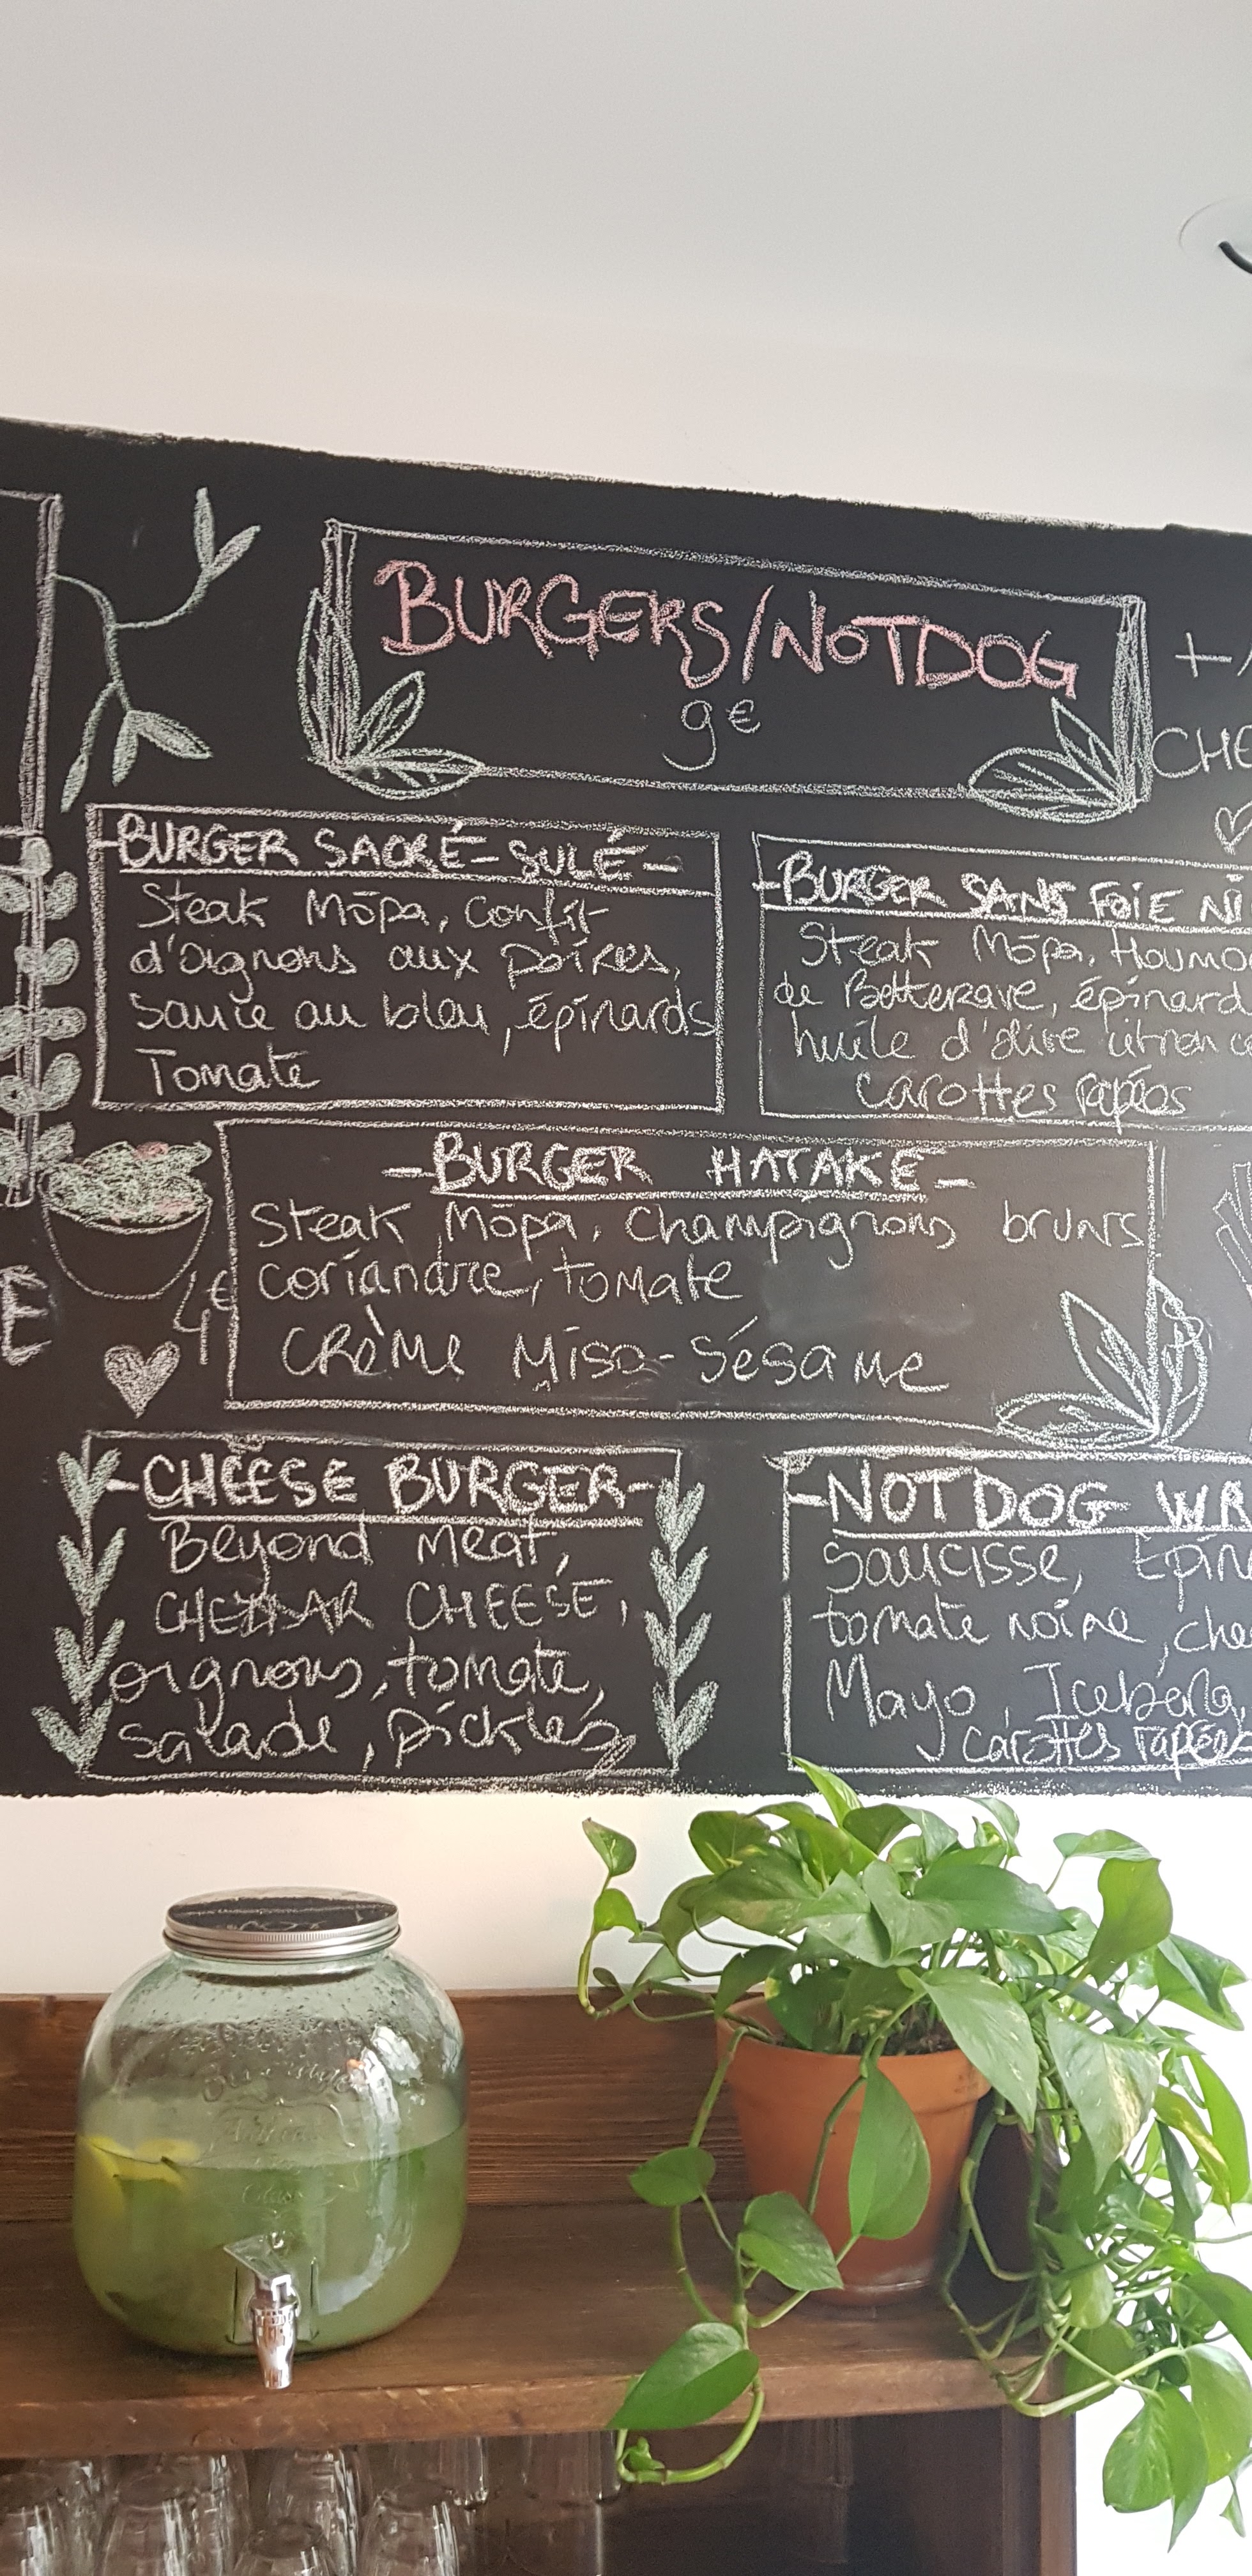 BURGERS/NOTDOG
9€
CHE
-BURGER SACRÉ-SULÉ-
Steak Mōpa, Confit
d'oignons aux poires,
sauce au bleu, épinards
Tomate
-BURGER SANS FOIE NI
Steak Mōpa, Houmo
de Betterave, épinard
huile d'olive citron co
Carottes rapées
-BURGER HATAKE-
Steak Mōpa, Champignons bruns
coriandre, tomate
CRèMe Miso-Sésame
E
4€
-CHEESE BURGER-
Beyond meat,
CHEDDAR CHEESE,
oignons, tomate,
salade, pickles
-NOT DOG WR
Saucisse, Épin
tomate noire, che
Mayo, Iceberg,
carottes rapées